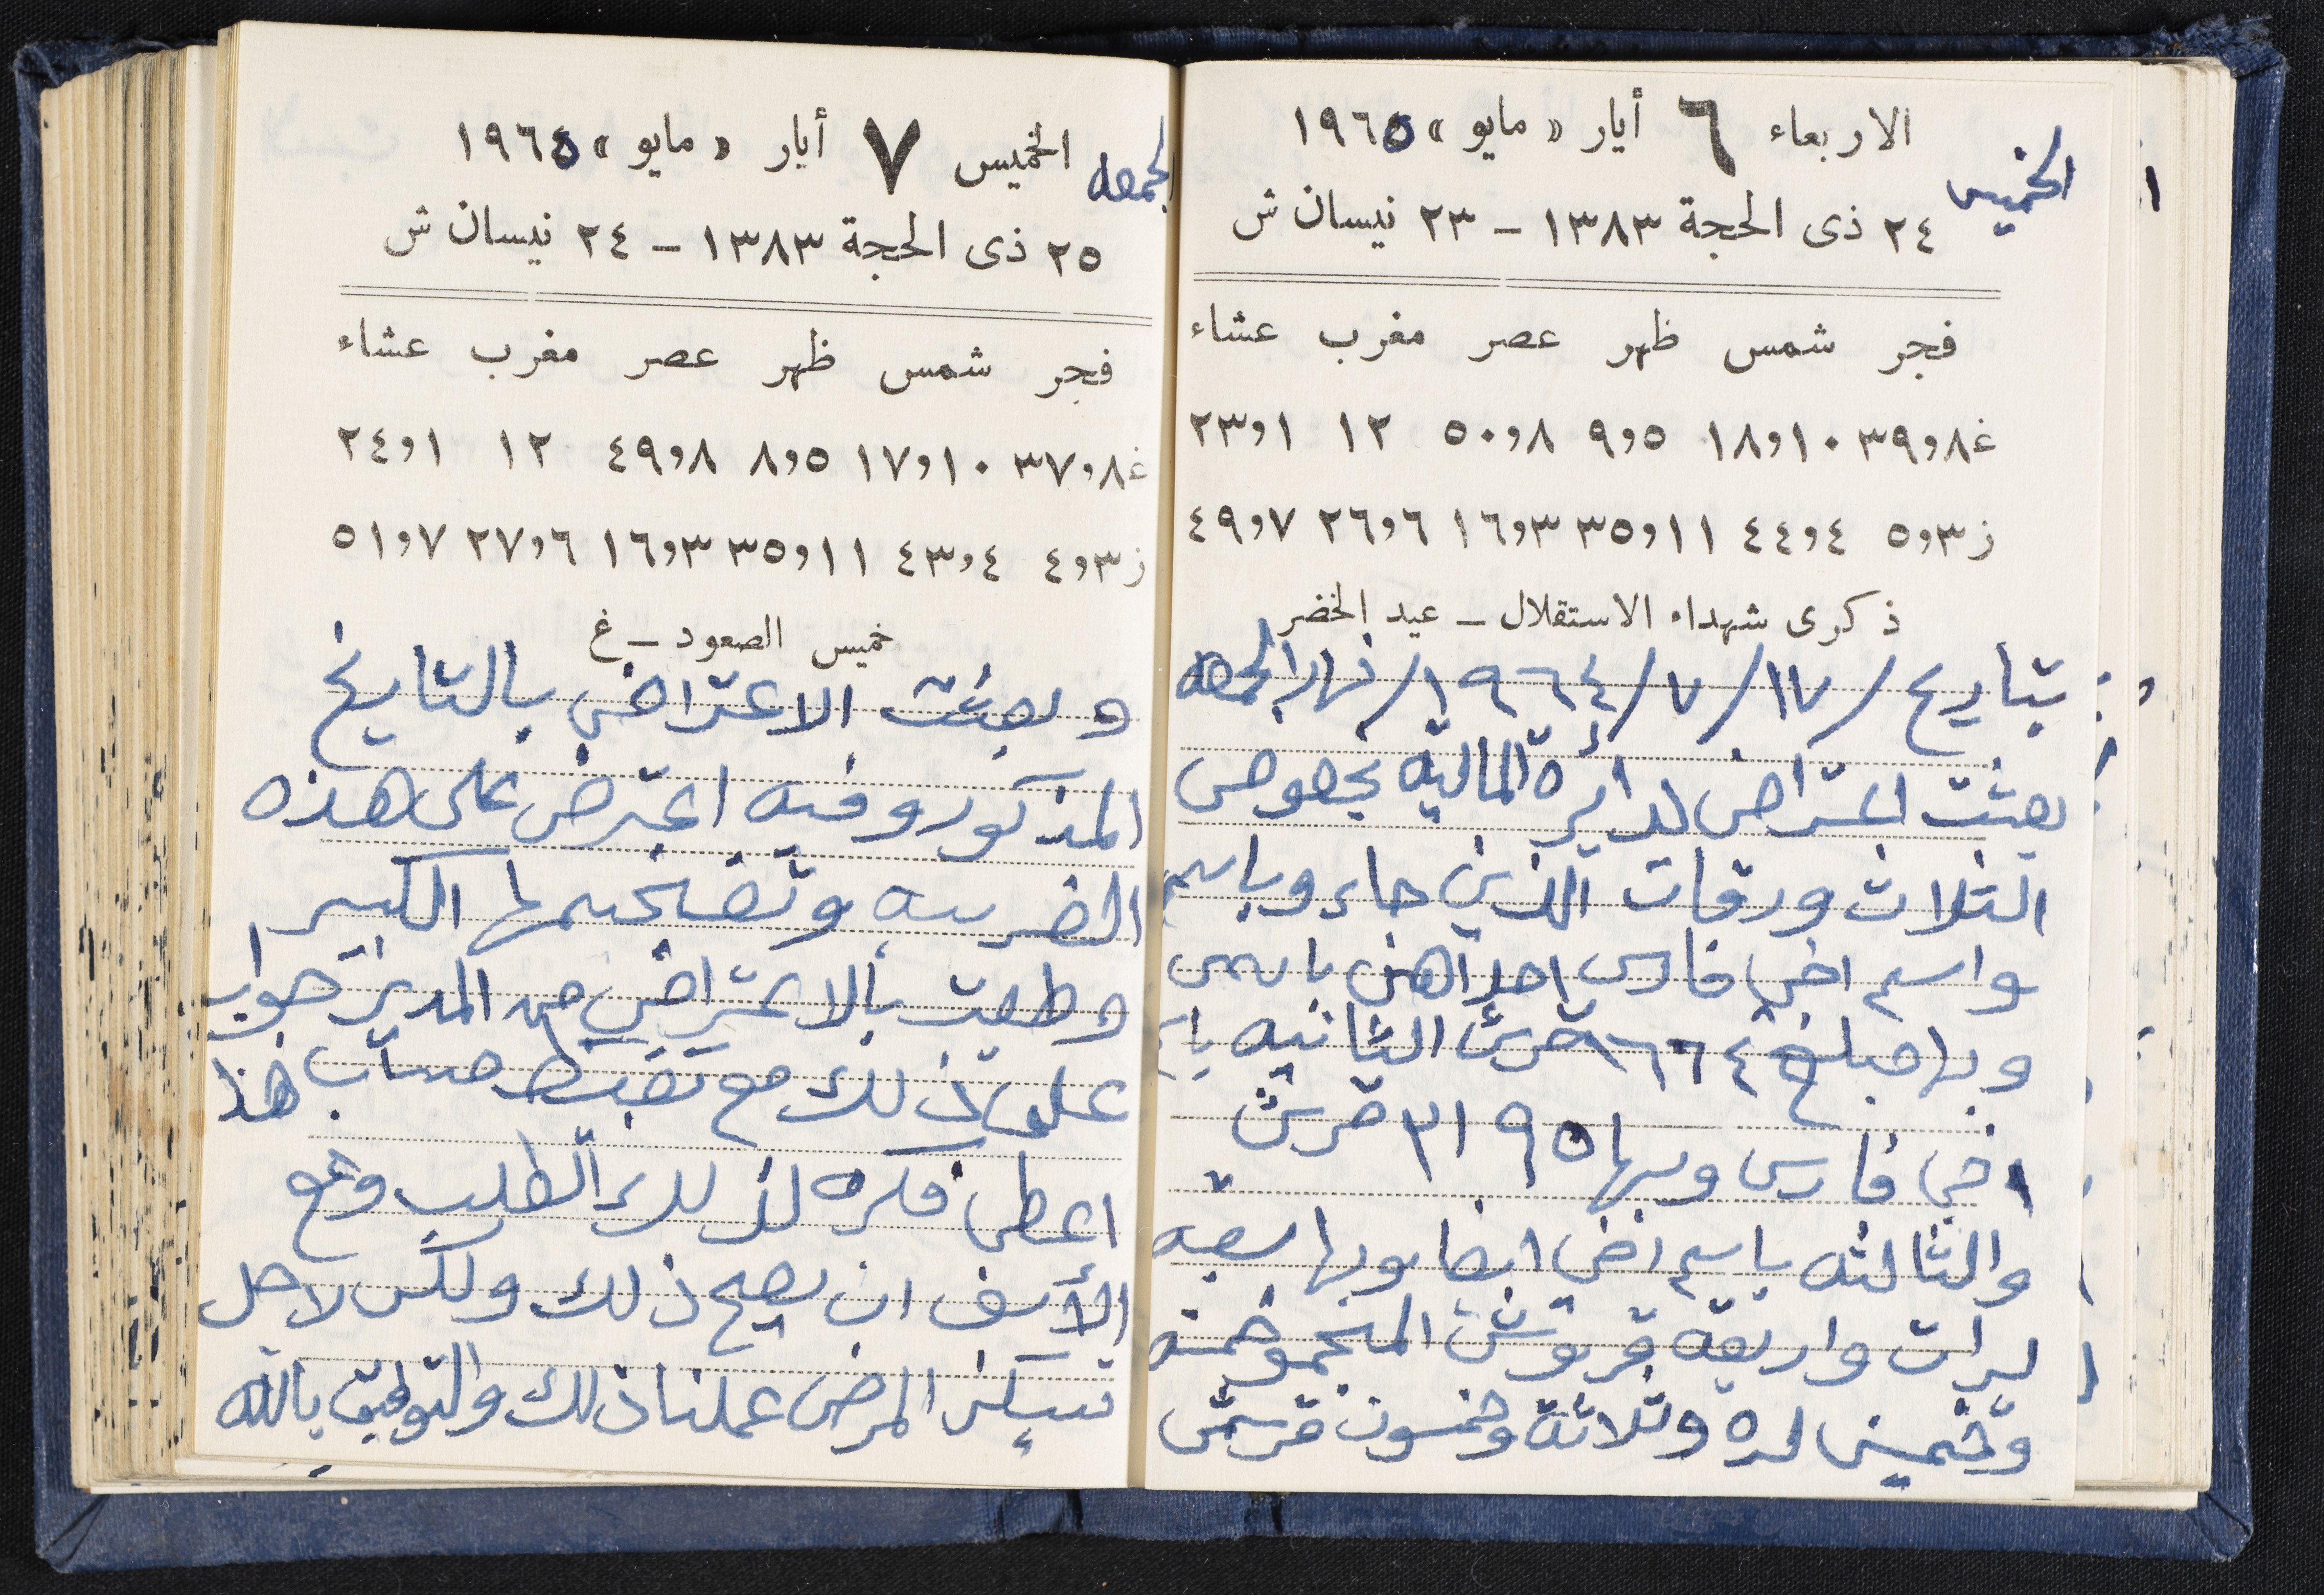 الخميس
الاربعاء ٦ أيار «مايو» ١٩٦٥
٢٤ ذى الحجة ١٣٨٣ - ٢٣ نيسان ش
فجر شمس ظهر عصر مغرب عشاء
غ ٨و٣٩ ١٠و١٨ ٥و٩ ٨و٥٠ ١٢ ١و٢٣
ز ٣و٥ ٤و٤٤ ١١و٣٥ ٣و١٦ ٦و٢٦ ٧و٤٩
ذكرى شهداء الاستقلال - عيد الخضر
بتاريخ /١٧/٧/١٩٦٤/ نهار الجمعه
بعثت اعتراض لدائرة الماليه بخصوص
الثلاث ورقات الذين جاء وباسم
واسم اخي فارس احداهن باسمي
وبها مبلغ ١٦٦٤ قرش الثانيه باسم
اخي فارس وبها ٣١٩٥ قرش
والثالثه باسم اخي ايضا وبها سبعه
ليرات واربعة قروش المجموع خمسة
وخمسين ليره وثلاثة وخمسون قرش
الجمعه
الخميس ٧ أيار «مايو» ١٩٦٥
٢٥ ذى الحجة ١٣٨٣ - ٢٤ نيسان ش
فجر شمس ظهر عصر مغرب عشاء
غ ٨و٣٧ ١٠و١٧ ٥و٨ ٨و٤٩ ١٢ ١و٢٤
ز ٣و٤ ٤و٤٣ ١١و٣٥ ٣و١٦ ٦و٢٧ ٧و٥١
خميس الصعود - غ
وبعثت الاعتراض بالتاريخ
المذكور وفيه اعترض على هذه
الضريبه وتضخيمها الكبير
وطلبت بالاعتراض من المدير جواب
على ذلك مع حساب هذا
اعطي فكره لذلك الطلب ومع
الأسف ان يصح ذلك ولكن لاجل
تسكير المرض عملنا ذلك والتوفيق بالله